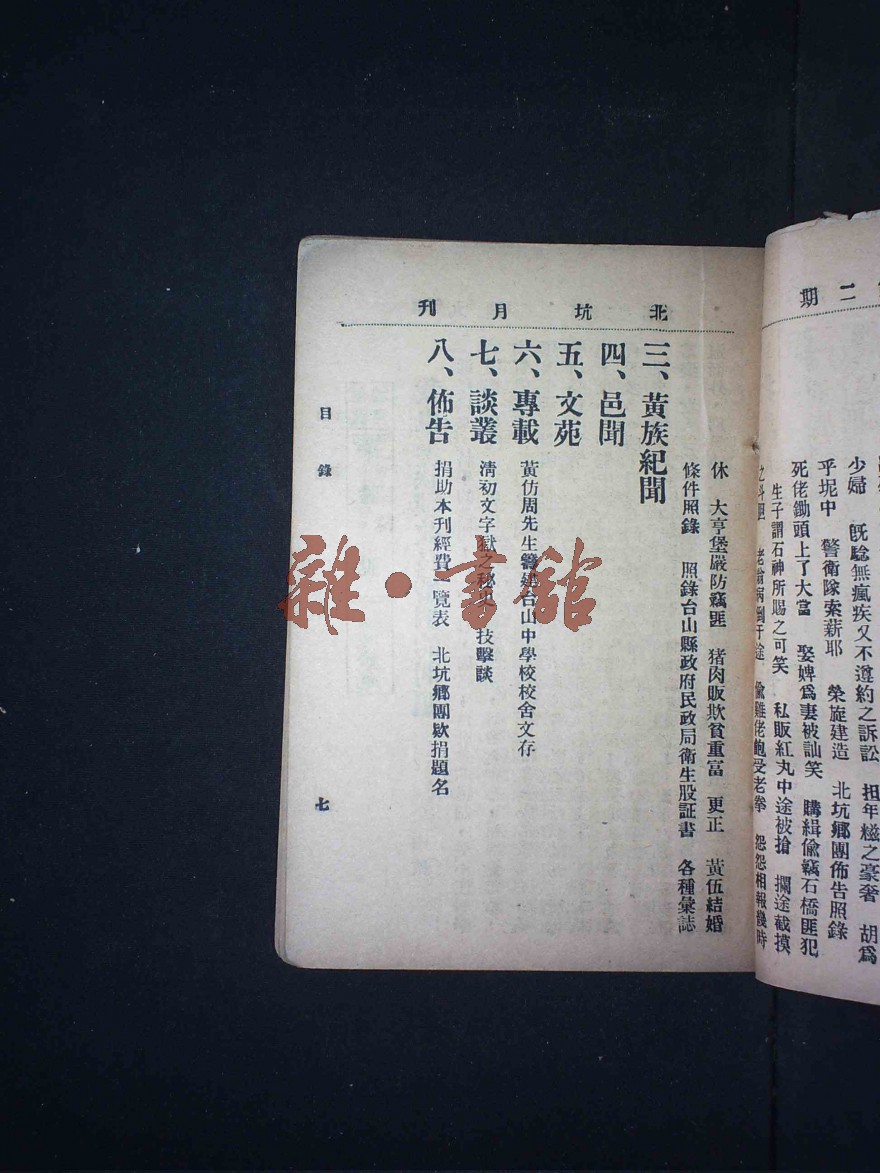 期二
少婦　既騐無瘋疾又不遵約之訴訟　担年糍之豪奢　胡爲
乎坭中　警衛隊索薪耶　榮旋建造　北坑鄉團佈告照錄
死佬鋤頭上了大當　娶婢爲妻被訕笑　購緝偸竊石橋匪犯
生子謂石神所賜之可笑　私販紅丸中途被搶　攔途截摸
老當病倒于途　偸雞佬飽受老拳　怨怨相報幾時
北坑月刊
休　大亨堡嚴防竊匪　猪肉販欺貧重富　更正　黃伍結婚
條件照錄　照錄台山縣政府民政局衛生股証書　各種彙誌
三、黃族紀聞
四、邑聞
五、文苑
六、專載　黃仿周先生籌建台山中學校校舍文存
七、談叢　淸初文字獄之秘史　技擊談
八、佈告　捐助本刊經費一覽表　北坑鄉團欵捐題名
目錄　七
雜·書館